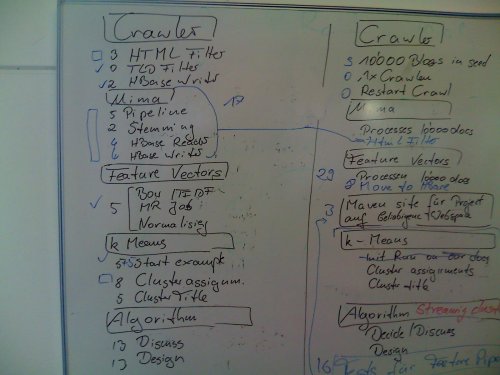 Crawler
3 HTML Filter
0 TLD Filter
2 HBase Writer
Mima
5 Pipeline
2 Stemming
4 HBase Reader
4 HBase Writer
17
Feature Vectors
5
Bow TFIDF
MR Job
k Means
Start example
8 Cluster assignm.
5 Cluster Title
Algorithm
13 Discuss
13 Design
Crawler
3 10000 Blogs in seed
0 1x Crawlen
0 Restart Crawl
Mima
Processes 10000 docs
Html Filter
Feature Vectors
Processes 10000 docs
Move to HBase
3 Maven site für Project
auf
k-Means
Run on our docs
Cluster assignments
Cluster title
Algorithm Streaming cluster
Decide / Discuss
Design
16 Tests für Feature Pipe